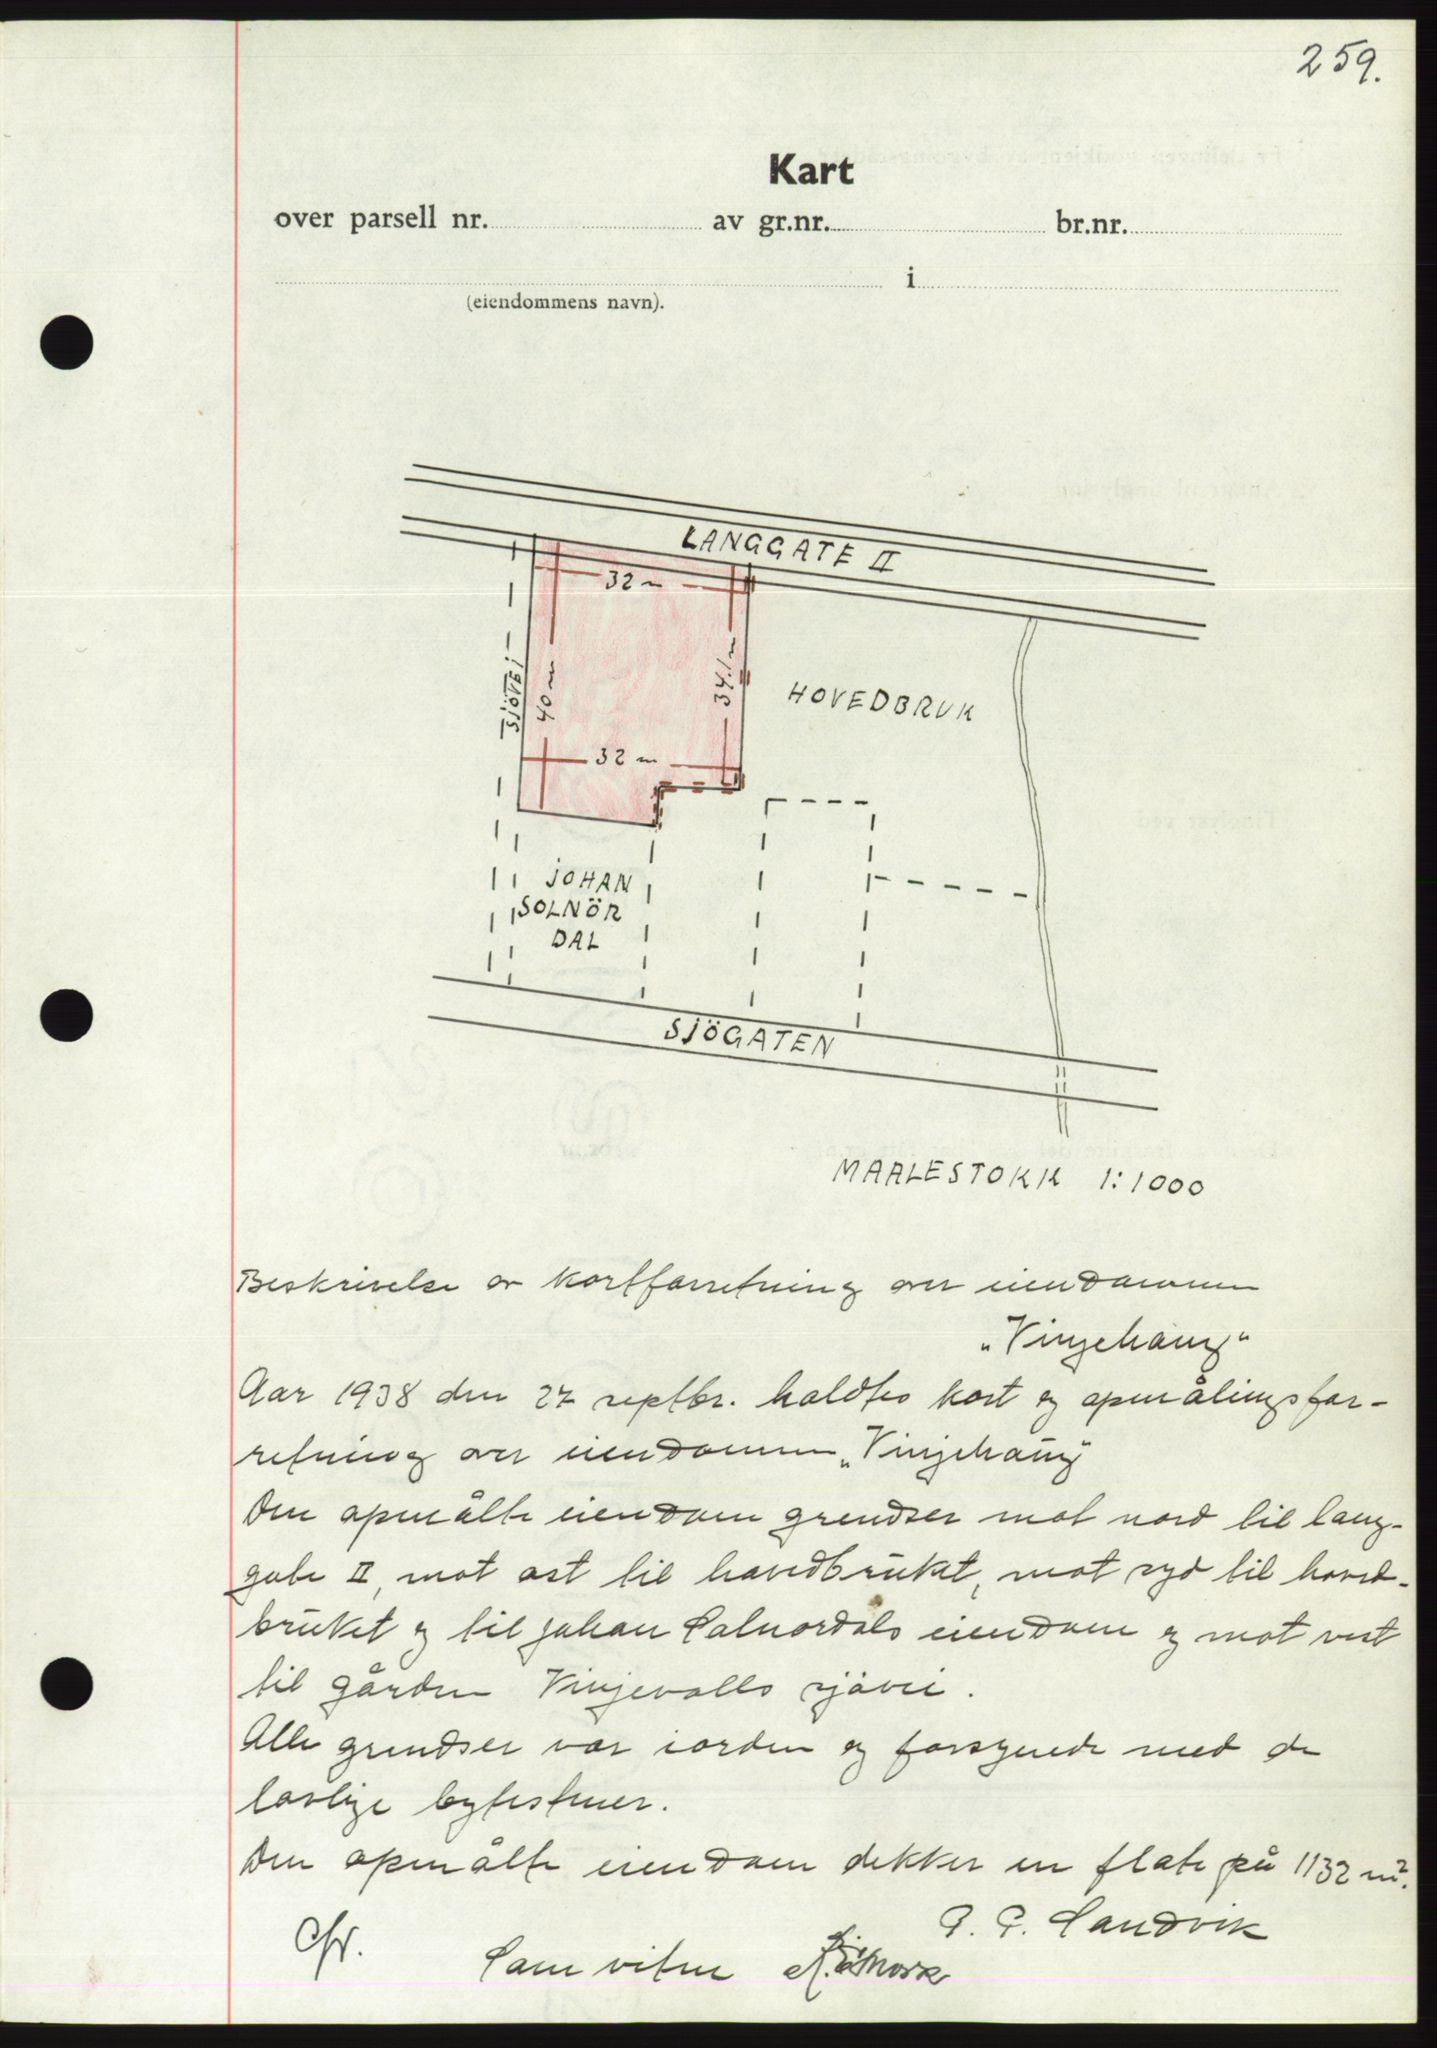 259.
Kart
over parsell nr. av gr.nr. br.nr.
i
(eiendommens navn).
LANGGATE II
32 m
SJÖVEI
40 m
34.1 m
HOVEDBRUK
32 m
JOHAN
SOLNÖR
DAL
SJÖGATEN
MAALESTOKK 1:1000
Beskrivelse av kartforretning over eiendommen
„Vinjehaug“
Aar 1938 den 27 septbr. holdtes kart og opmålingsfor-
retning over eiendommen „Vinjehaug“
Den opmålte eiendom grendser mot nord til lang-
gate II, mot øst til hovedbruket, mot syd til hoved-
bruket og til Johan Solnørdals eiendom og mot vest
til gården Vinjevolls sjøvei.
Alle grendser var i orden og forsynede med de
lovlige bytestener.
Den opmålte eiendom dekker en flate på 1132 m².
P. P. Sandvik
Som vitne